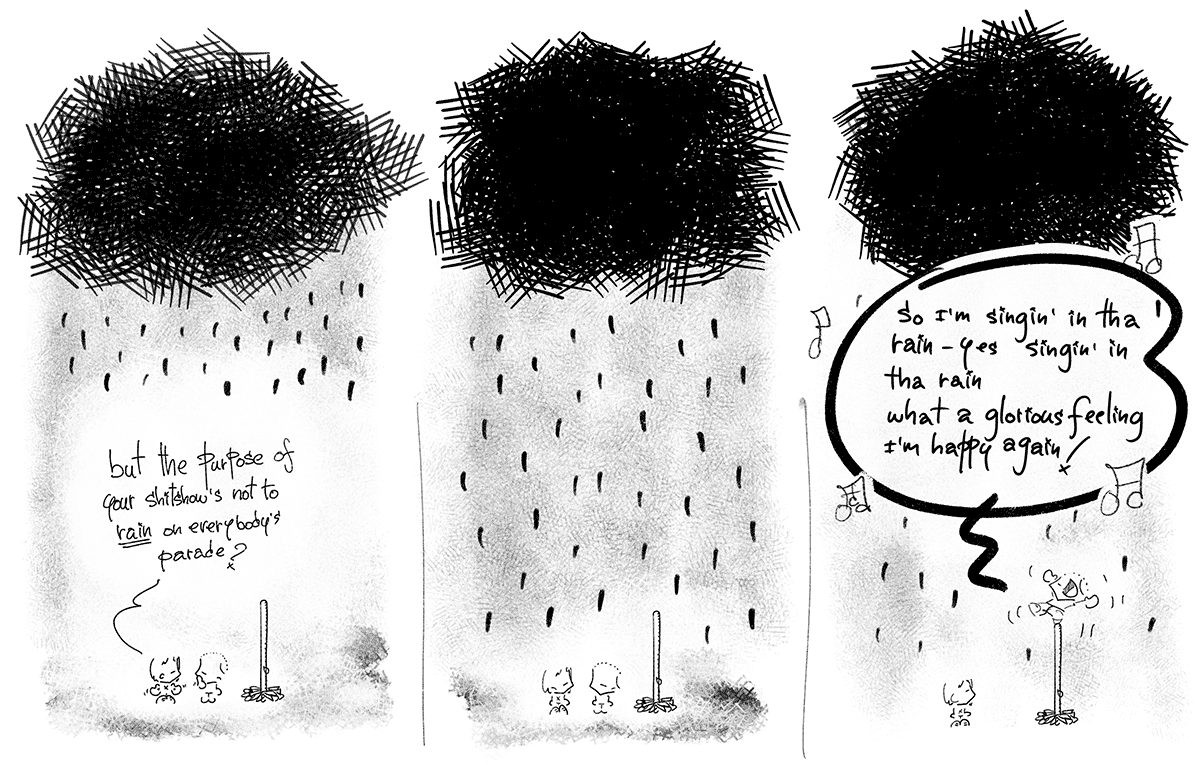 but the purpose of
your shitshow's not to
rain on everybody's
parade?
So I'm singin' in tha
rain - yes singin' in
tha rain
what a glorious feeling
I'm happy again!